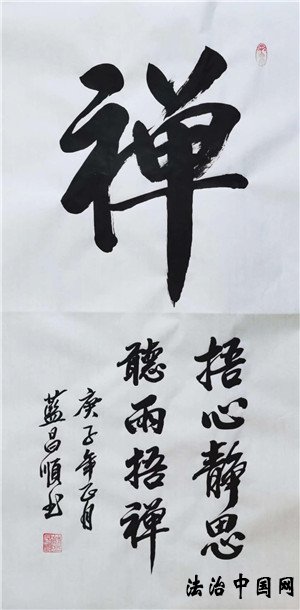 禅
捂心静思
聽雨捂禅
庚子年正月
藍昌順书
法治中国网